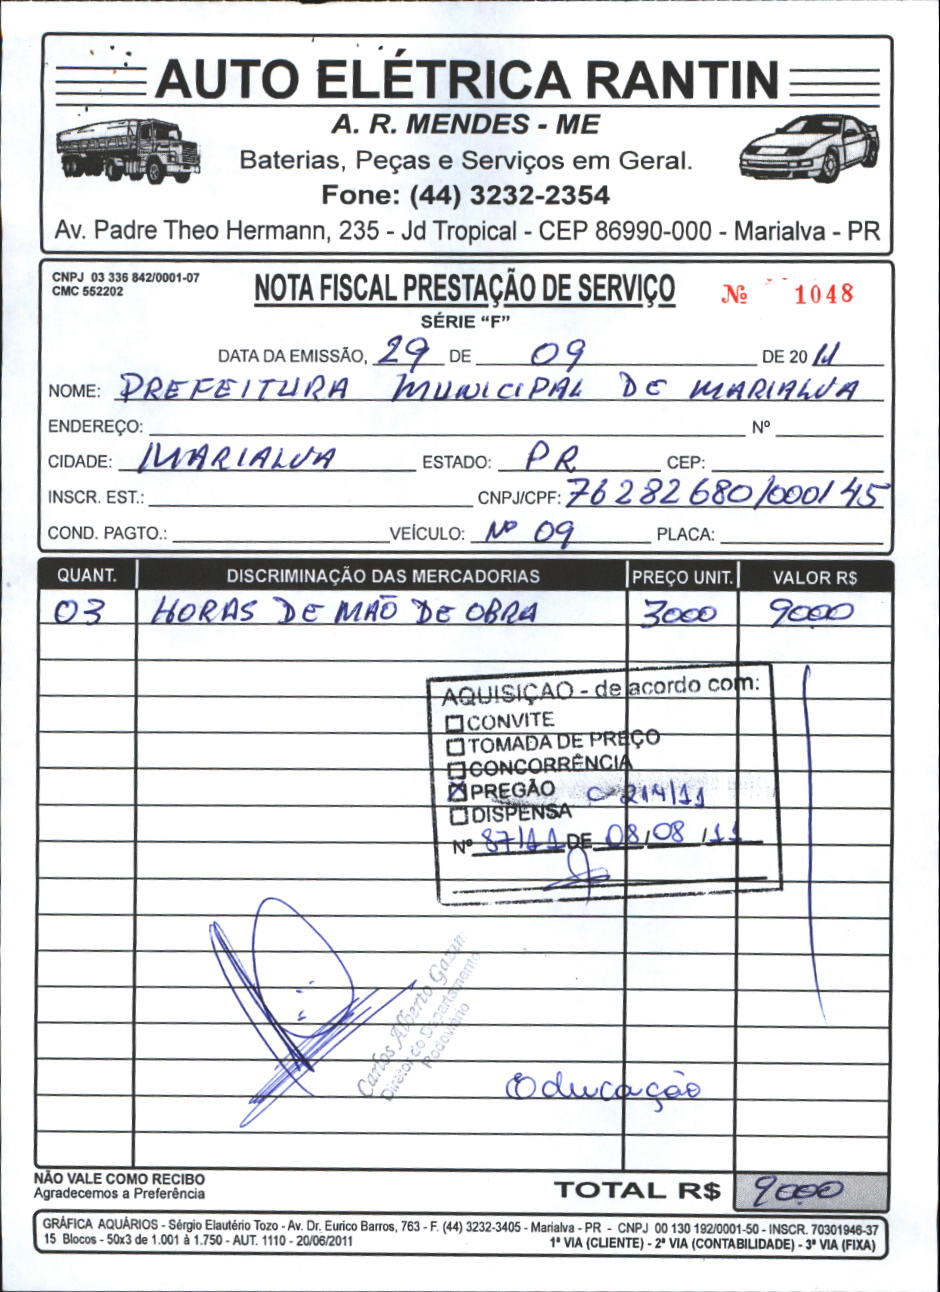 AUTO ELÉTRICA RANTIN
A. R. MENDES - ME
Baterias, Peças e Serviços em Geral.
Fone: (44) 3232-2354
Av. Padre Theo Hermann, 235 - Jd Tropical - CEP 86990-000 - Marialva - PR
CNPJ 03 336 842/0001-07
CMC 552202
NOTA FISCAL PRESTAÇÃO DE SERVIÇO
Nº 1048
SÉRIE “F”
DATA DA EMISSÃO, 29 DE 09 DE 2011
NOME: PREFEITURA MUNICIPAL DE MARIALVA
ENDEREÇO: Nº
CIDADE: MARIALVA ESTADO: PR CEP:
INSCR. EST.: CNPJ/CPF: 76282680/0001 45
COND. PAGTO.: VEÍCULO: Nº 09 PLACA:
QUANT. DISCRIMINAÇÃO DAS MERCADORIAS PREÇO UNIT. VALOR R$
03 HORAS DE MÃO DE OBRA 3000 9000
AQUISIÇAO - de acordo com:
CONVITE
TOMADA DE PREÇO
CONCORRÊNCIA
PREGÃO C-214/11
DISPENSA
Nº 87/11 DE 08/08/11
Carlos Alberto Gazin
Diretor do Departamento
Rodoviário
Educação
NÃO VALE COMO RECIBO
Agradecemos a Preferência
TOTAL R$ 9000
GRÁFICA AQUÁRIOS - Sérgio Elautério Tozo - Av. Dr. Eurico Barros, 763 - F. (44) 3232-3405 - Marialva - PR - CNPJ 00 130 192/0001-50 - INSCR. 70301946-37
15 Blocos - 50x3 de 1.001 à 1.750 - AUT. 1110 - 20/06/2011 1ª VIA (CLIENTE) - 2ª VIA (CONTABILIDADE) - 3ª VIA (FIXA)